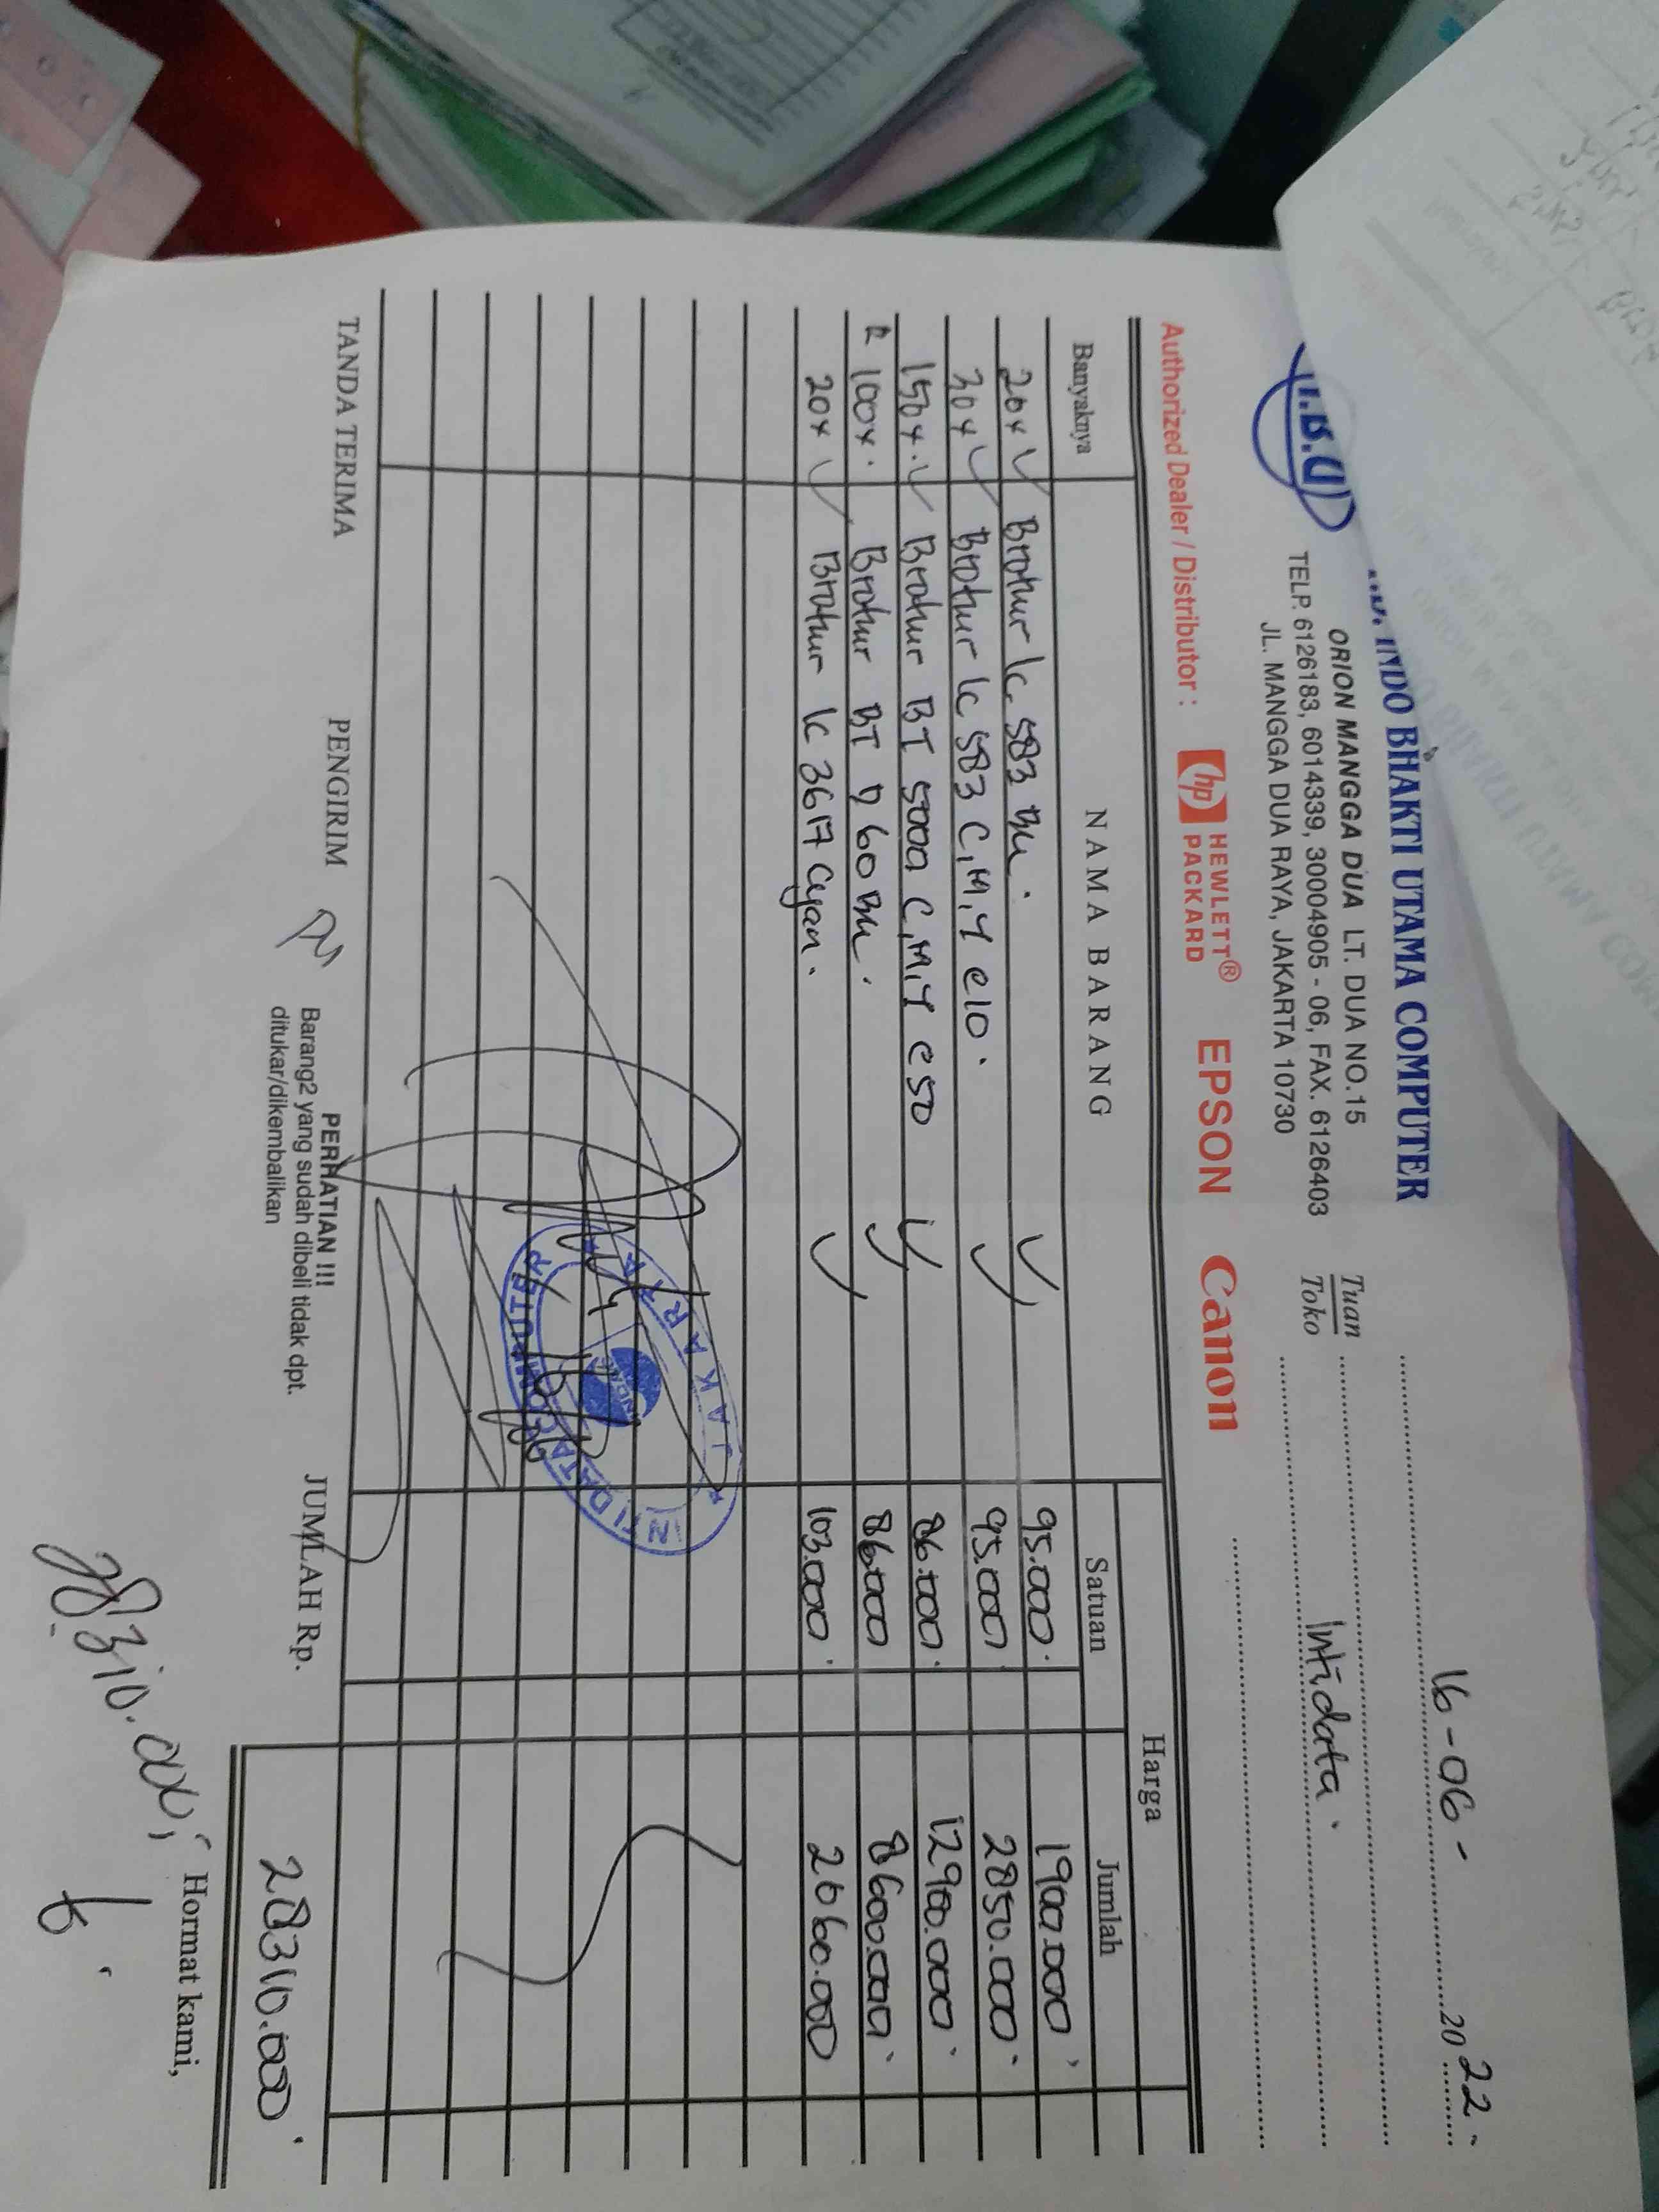 INDO BHAKTI UTAMA COMPUTER
ORION MANGGA DUA LT. DUA NO. 15
TELP. 6126183, 6014339, 30004905 - 06, FAX. 6126403
JL. MANGGA DUA RAYA, JAKARTA 10730
I.B.U
16-06-2022
Tuan
Toko
Intidata
Authorized Dealer / Distributor : hp HEWLETT® PACKARD EPSON Canon
Banyaknya NAMA BARANG Harga
Satuan Jumlah
20x Brother lc 583 Bk. 95.000. 1900.000
30x Brother lc 583 C,M,Y @10. 95.000 2850.000
150x. Brother BT 5000 C,M,Y @50 86.000. 12900.000
100x. Brother BT D 60 Bk. 86.000 8600.000
20x Brother lc 3617 Cyan. 103.000. 2060.000
JAKARTA
INTI DATA COMPUTER
TANDA TERIMA PENGIRIM
PERHATIAN !!!
Barang2 yang sudah dibeli tidak dpt.
ditukar/dikembalikan
JUMLAH Rp. 28310.000
Hormat kami,